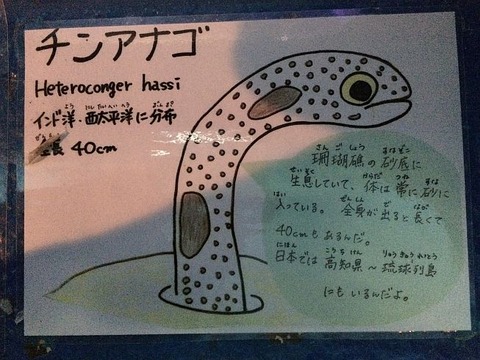 チンアナゴ
Heteroconger hassi
インド洋・西太平洋に分布
全長 40cm
珊瑚礁の砂底に
生息していて、体は常に砂に
入っている。 全身が出ると長くて
40cmもあるんだ。
日本では高知県～琉球列島
にもいるんだよ。